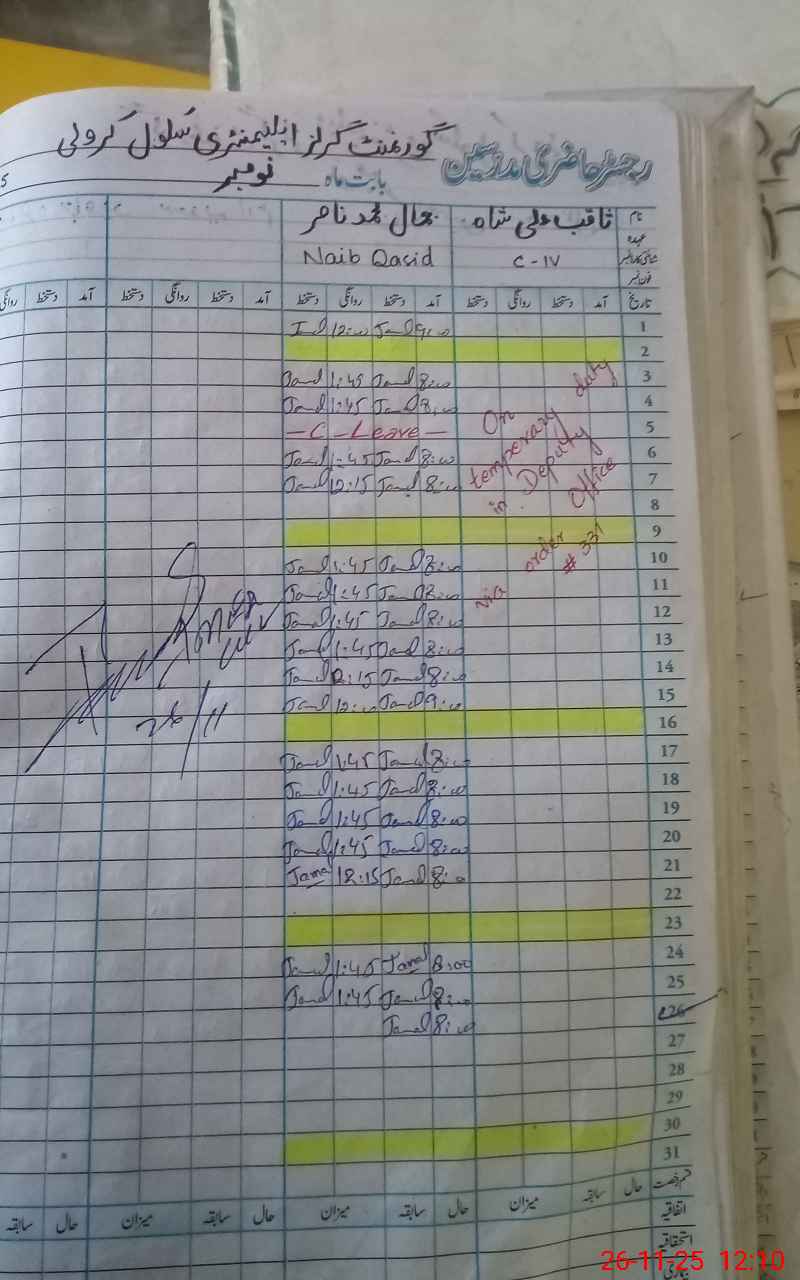 گورنمنٹ گرلز ایلیمنٹری سکول کرولی
رجسٹر حاضری مدرسین
بابت ماہ نومبر
نام ثاقب علی شاہ جمال محمد ناصر
عہدہ C-IV Naib Qasid
فون نمبر
تاریخ آمد دستخط روانگی دستخط آمد دستخط روانگی دستخط آمد دستخط روانگی دستخط آمد دستخط روانگی
1 9:00 Jamal 12:00
2
3 8:00 Jamal 1:45 Jamal
4 8:00 Jamal 1:45 Jamal
5 -C-Leave-
6 8:00 Jamal 1:45 Jamal
7 8:00 Jamal 12:15 Jamal
8
9
On temperary duty
in Deputy Office
via order # 331
10 8:00 Jamal 1:45 Jamal
11 8:00 Jamal 1:45 Jamal
12 8:00 Jamal 1:45 Jamal
13 8:00 Jamal 1:45 Jamal
14 8:00 Jamal 12:15 Jamal
15 9:00 Jamal 12:00 Jamal
16
26/11
17 8:00 Jamal 1:45 Jamal
18 8:00 Jamal 1:45 Jamal
19 8:00 Jamal 1:45 Jamal
20 8:00 Jamal 1:45 Jamal
21 8:00 Jamal 12:15 Jamal
22
23
24 8:00 Jamal 1:45 Jamal
25 8:00 Jamal 1:45 Jamal
26 8:00 Jamal
27
28
29
30
31
قسم رخصت حال سابقہ میزان حال سابقہ میزان حال سابقہ میزان حال سابقہ
اتفاقیہ
استحقاقیہ
بیماری
26-11-25 12:10